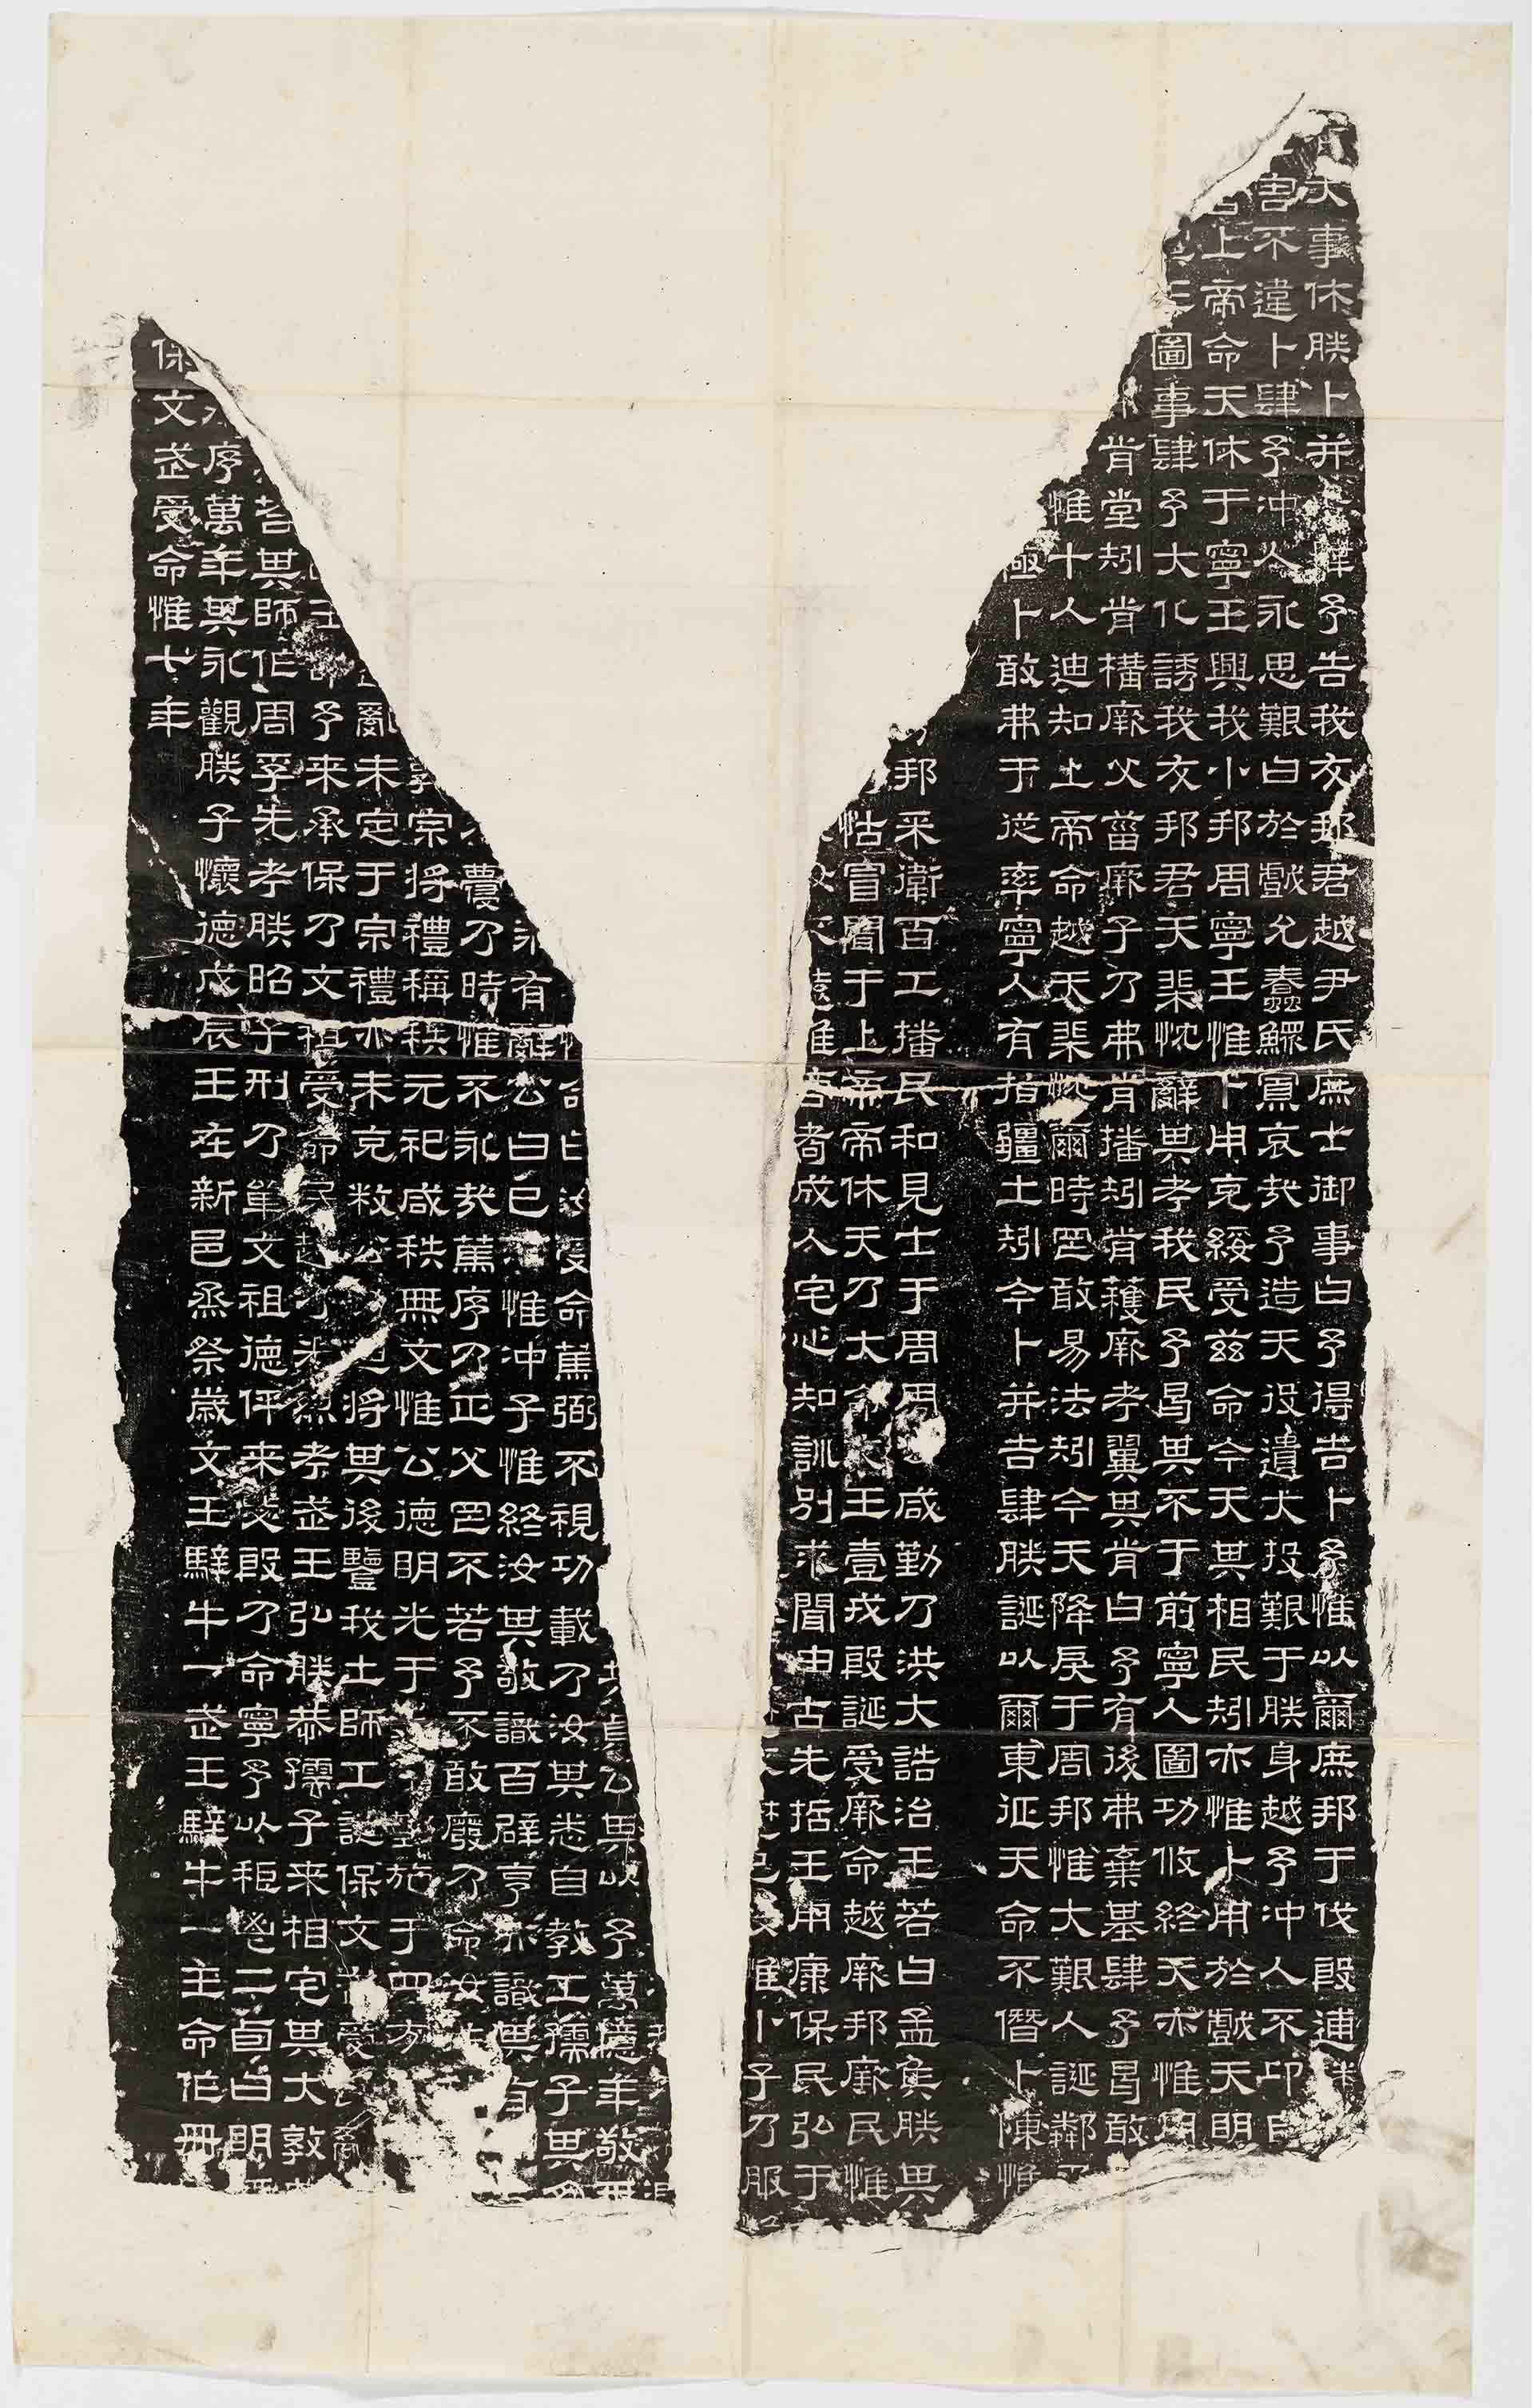 大事休朕卜并吉肆予告我友邦君越尹氏庶士御事曰予得吉卜予惟以爾庶邦于伐殷逋
害不違卜肆予沖人永思艱曰於戲允蠢鰥寡哀哉予造天役遺大投艱于朕身越予沖人不卬自
上帝命天休于寧王興我小邦周寧王惟卜用克綏受茲命今天其相民矧亦惟卜用於戲天明
圖事肆予大化誘我友邦君天棐忱辭其考我民予曷其不于前寧人圖功攸終天亦惟用
肯堂矧肯構厥父菑厥子乃弗肯播矧肯穫厥考翼其肯曰予有後弗棄基肆予曷敢
惟十人迪知上帝命越天棐忱爾時罔敢易法矧今天降戾于周邦惟大艱人誕鄰
極卜敢弗于從率寧人有指疆土矧今卜并吉肆朕誕以爾東征天命不僭卜陳惟
邦采衛百工播民和見士于周周咸勤乃洪大誥治王若曰孟侯朕其
怙冒聞于上帝帝休天乃大命文王壹戎殷誕受厥命越厥邦厥民惟
遠惟耇成人宅心知訓別求聞由古先哲王用康保民弘于
惟小子乃服
公其以予萬億年敬天
曰汝受命篤弼丕視功載乃汝其悉自教工孺子其
有辭公曰已惟沖子惟終汝其敬識百辟享亦識其有
乃時惟不永哉篤序乃正父罔不若予不敢廢乃命汝
宗將禮稱秩元祀咸秩無文惟公德明光于施于四方
亂未定于宗禮亦未克敉公迪將其後監我士師工誕保文武受
王命予來承保乃文祖受命民越乃光烈考武王弘朕恭孺子來相宅其大敦
其師作周孚先考朕昭子刑乃單文祖德伻來毖殷乃命寧予以秬鬯二卣曰明
序萬年其永觀朕子懷德戊辰王在新邑烝祭歲文王騂牛一武王騂牛一王命作冊
保文武受命惟七年